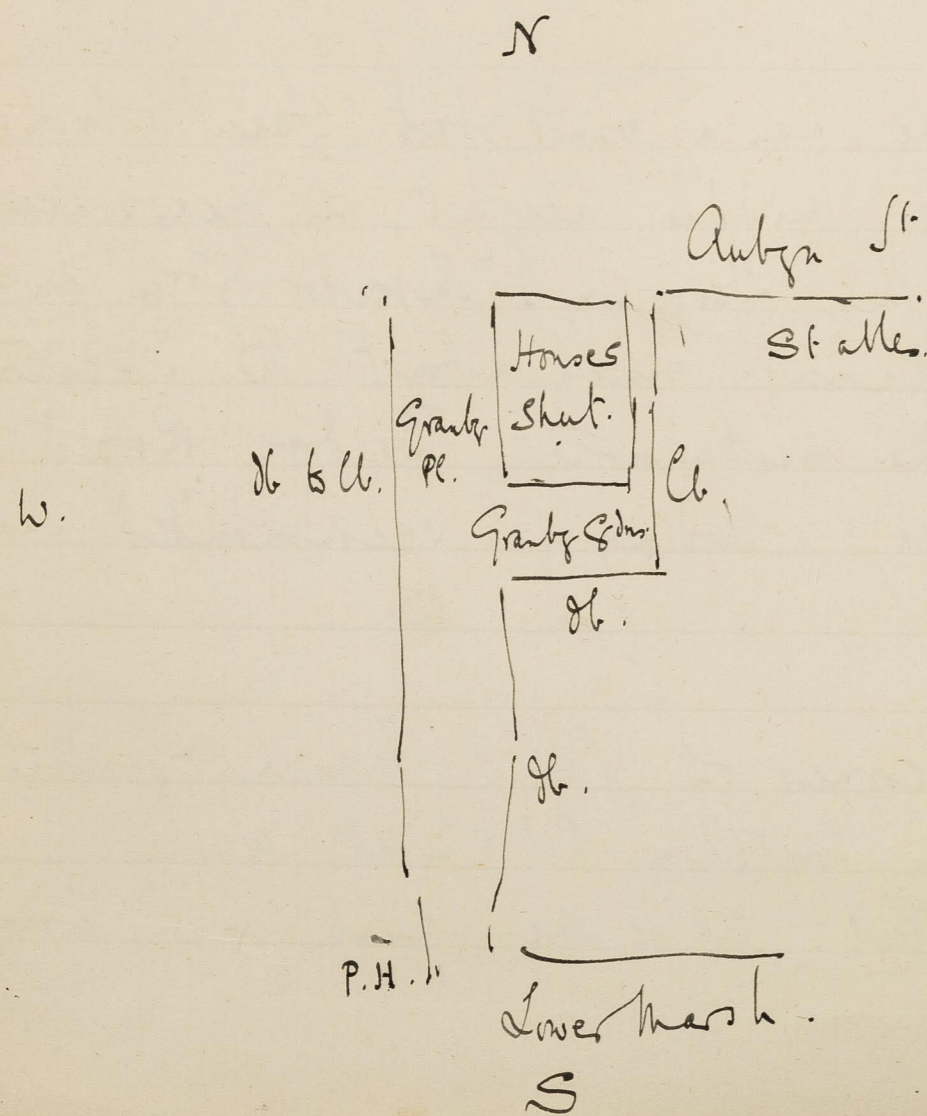 N
Aubyn St.
Stables.
Houses
Shut.
Granby
Pl.
Db to Lb.
Lb.
W.
Granby Gdns.
Db.
Db.
P.H.
Lower Marsh.
S